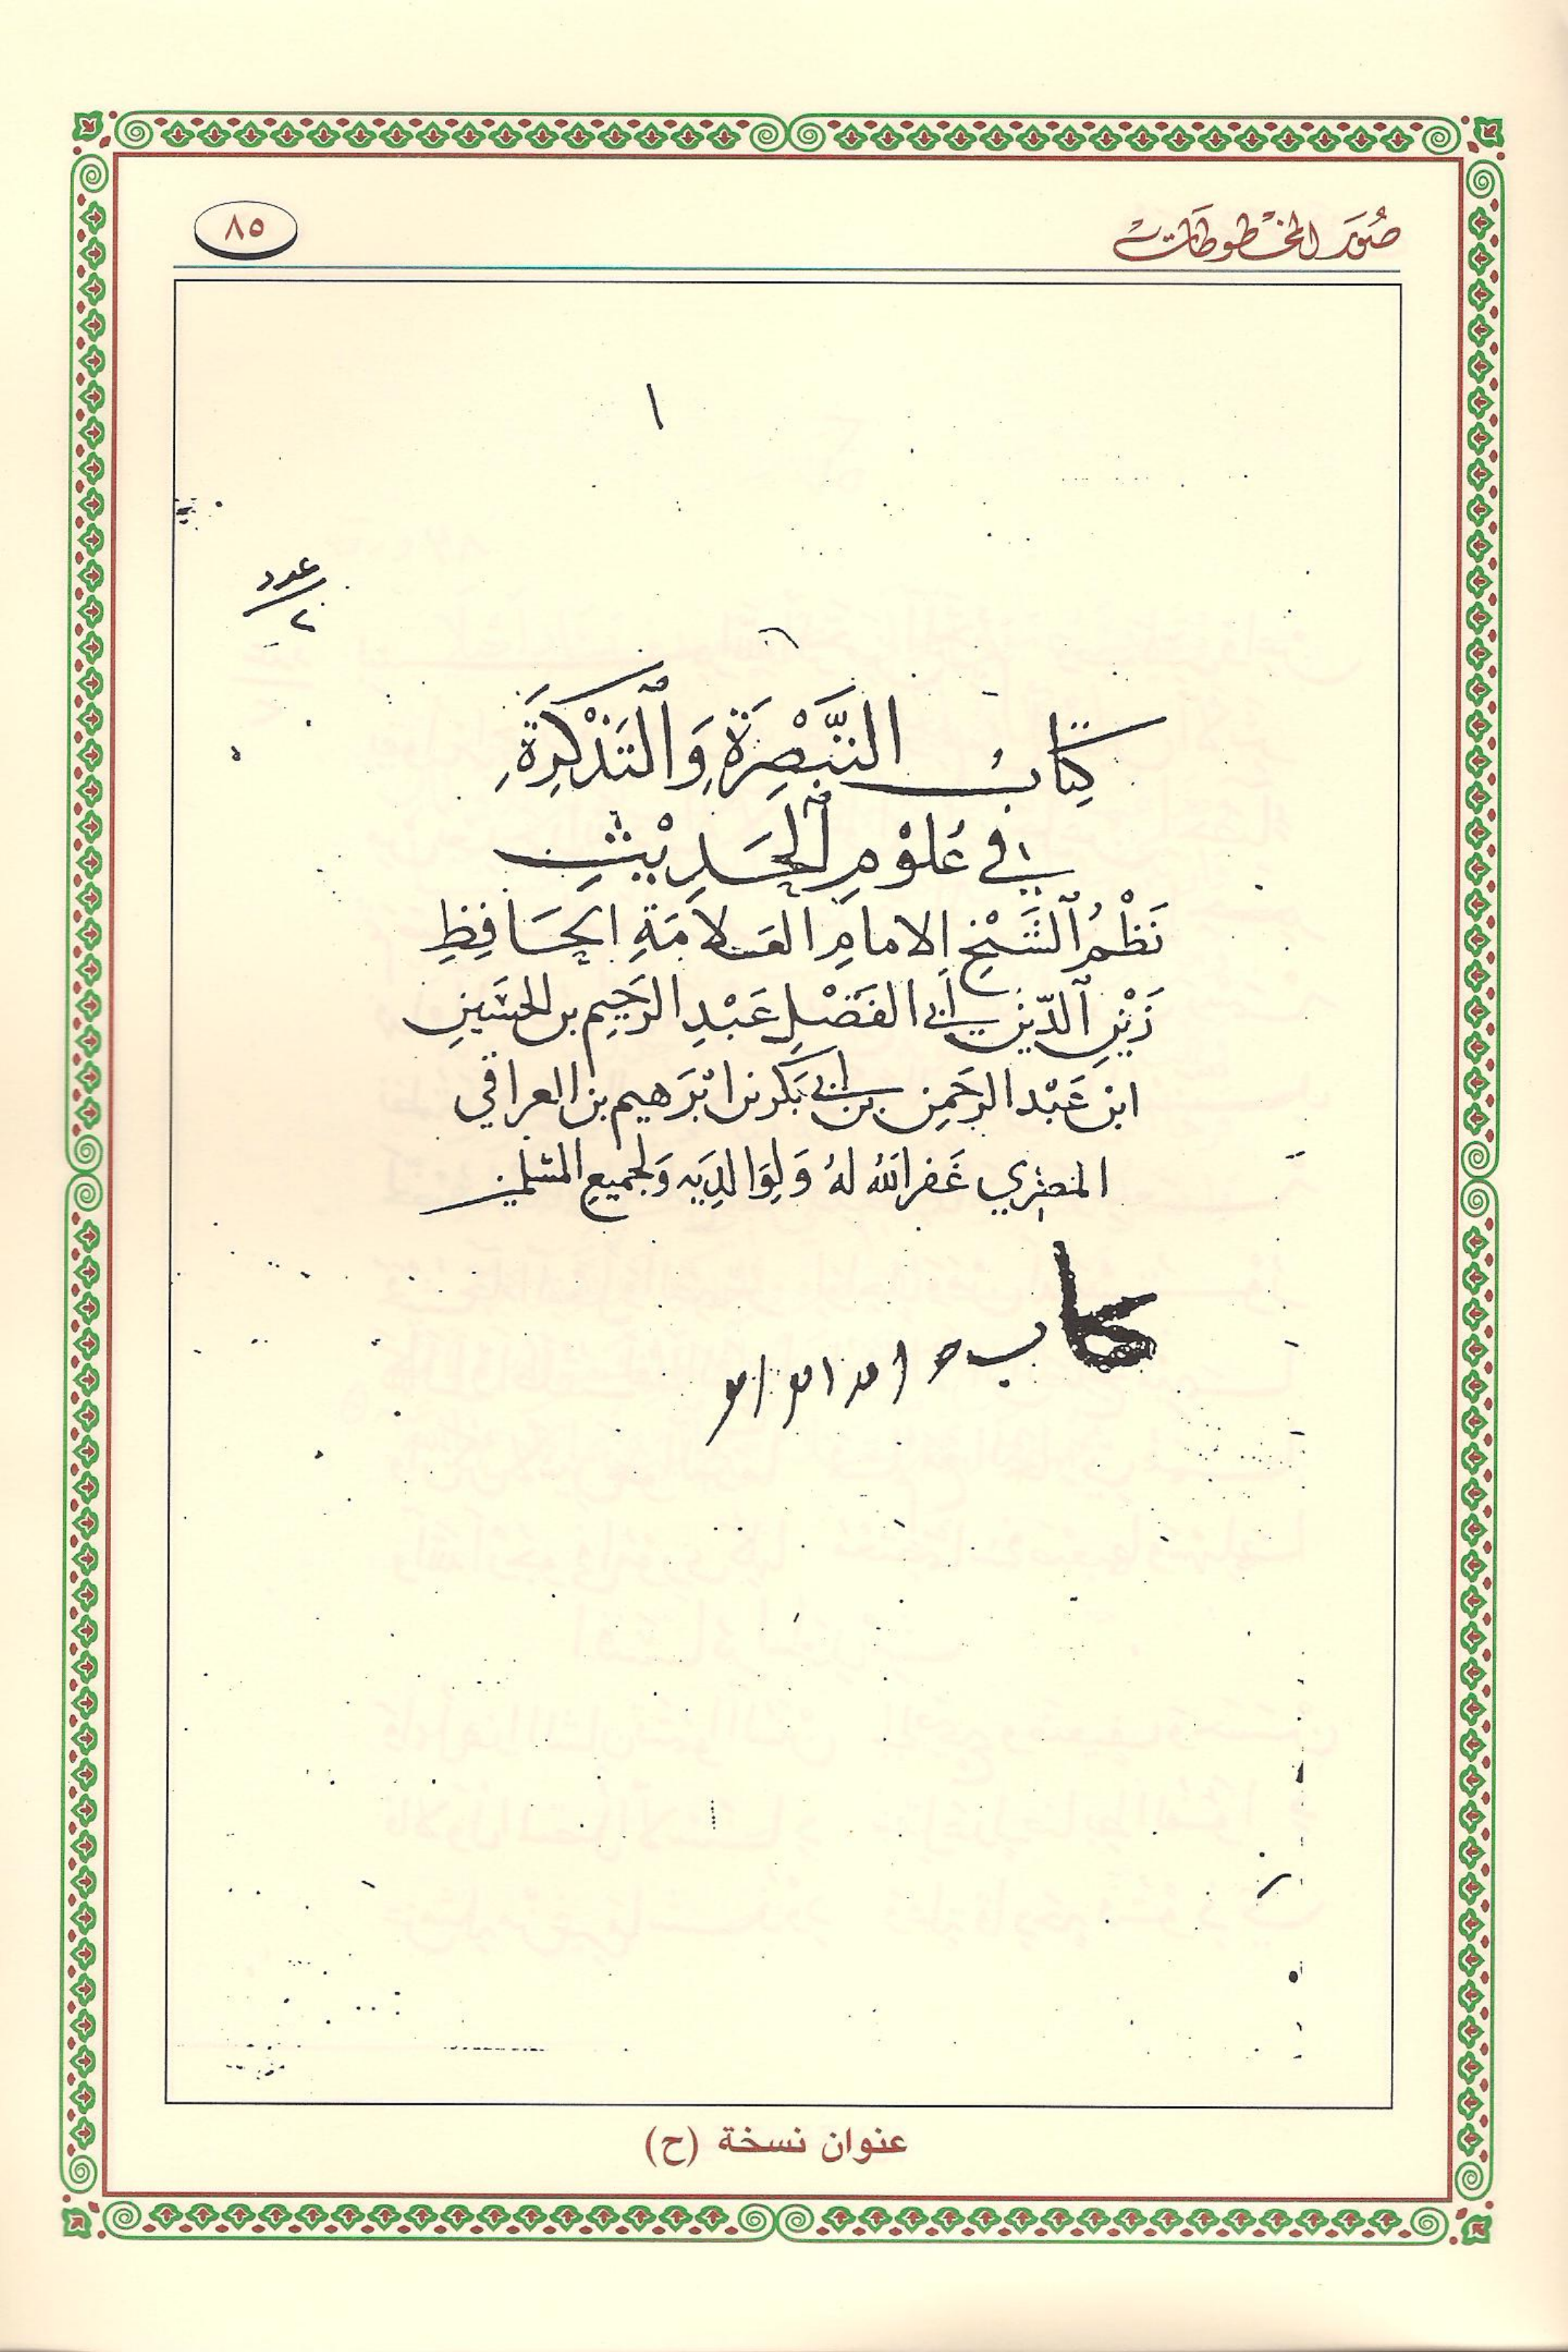 صُوَر المخْطوطَات
٨٥
١
عدد
٢
كِتَابُ التَّبْصِرَةِ وَالتَذْكِرَةِ
في عُلُوْمِ الحَدِيْثِ
نَظْمُ الشَّيْخِ الامامِ العَلامَةِ الحَافِظِ
زَيْنِ الدّين أبي الفَضْلِ عَبْدِ الرَّحِيمِ بن الحسَينِ
ابن عَبْد الرحَمن بن أبي بَكر بن ابْرَهيم بن العراقي
المصري غَفر اللهُ لهُ وَلِوَالِدَيه وَلجميع المسْلمين
كاب
عنوان نسخة (ح)